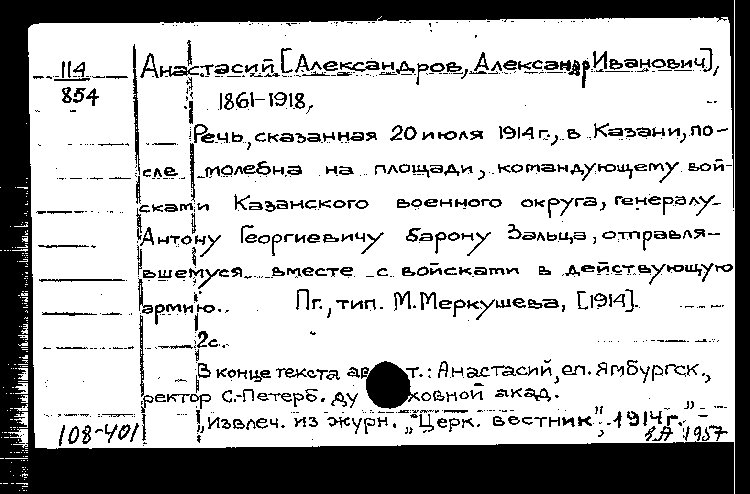 114 Анастасий [Александров, Александр Иванович],
854 1861-1918,
Речь, сказанная 20 июля 1914 г., в Казани, по-
сле молебна на площади, командующему вой-
сками Казанского военного округа, генералу
Антону Георгиевичу барону Зальца, отправля-
вшемуся вместе с войсками в действующую
армию. Пг., тип. М. Меркушева, [1914].
2с.
В конце текста авт.: Анастасий, еп. Ямбургск.,
ректор С.-Петерб. духовной акад.
"Извлеч. из журн. "Церк. вестник", 1914 г."
108-401 1957